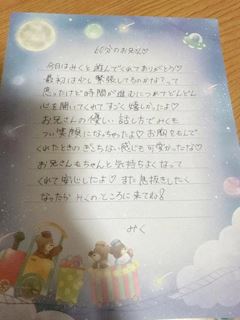 60分のお兄さん♡
今日はみくと遊んでくれてありがとう♡
最初は少し緊張してるのかな？って
思ったけど時間が進むにつれてどんどん
心を開いてくれてすごく嬉しかったよ♡
お兄さんの優しい話し方でみくも
つい笑顔になっちゃったよ♡お胸をもんで
くれたときのぎこちない感じも可愛かったな♡
お兄さんもちゃんと気持ちよくなって
くれて安心したよ♡また息抜きしたく
なったらみくのところに来てね!
みく